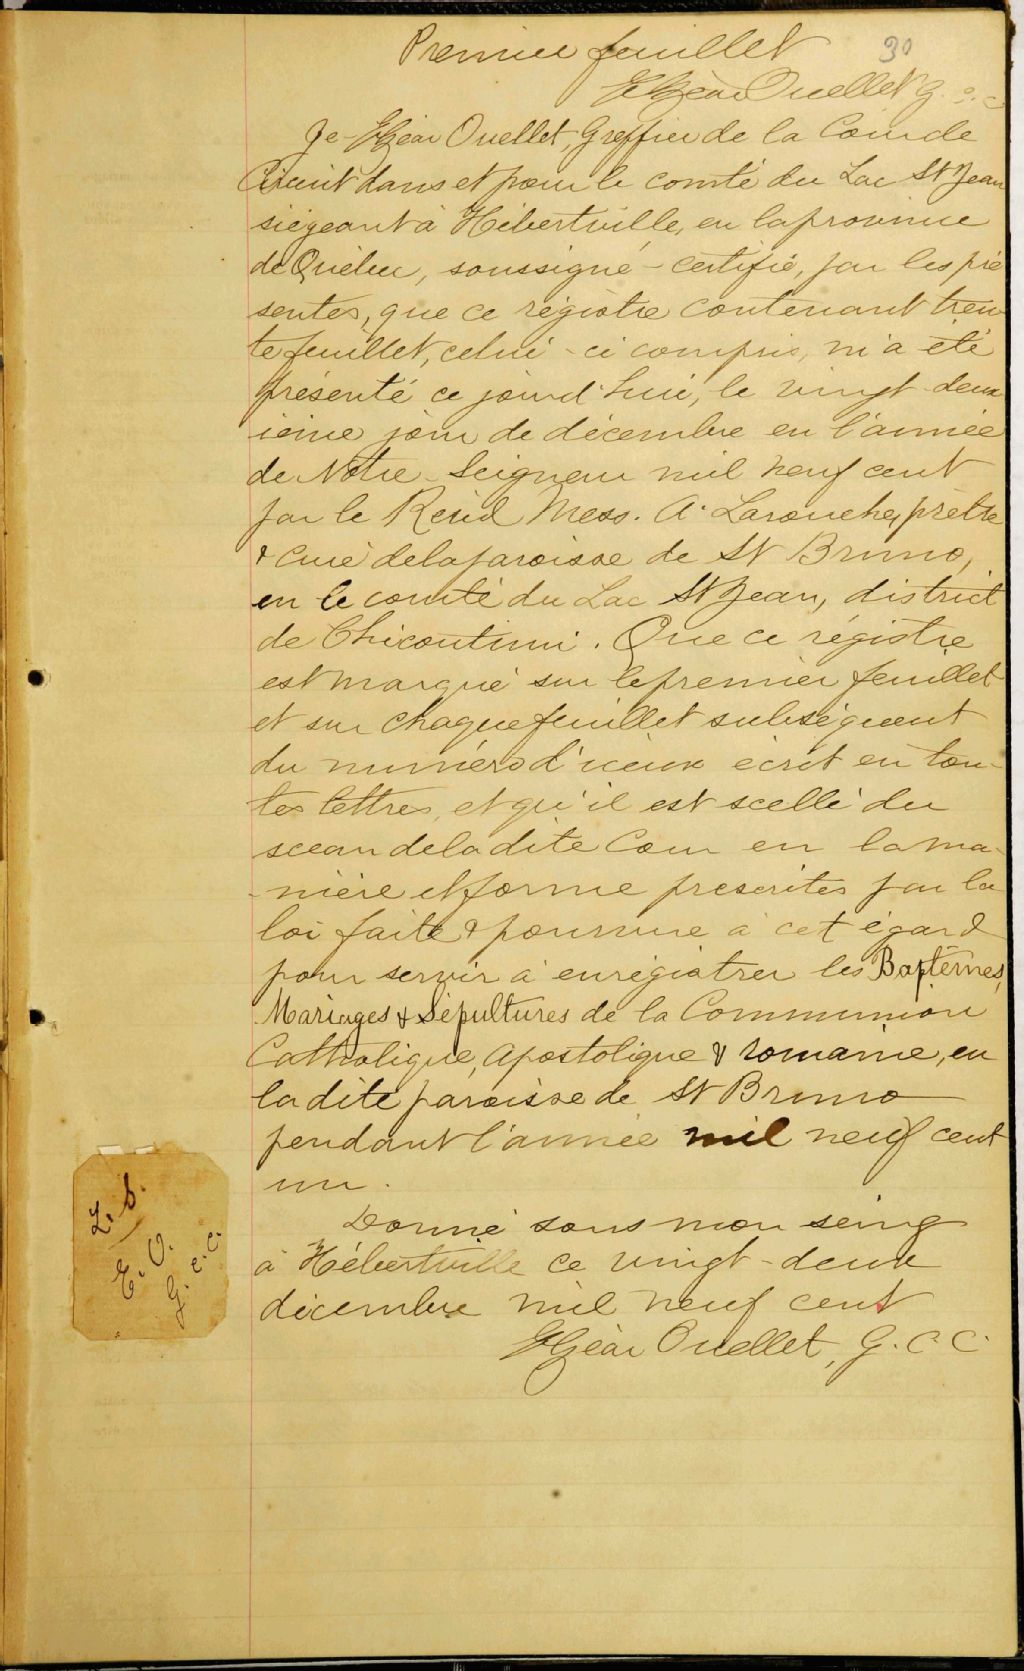 Premier feuillet 30
Elzéar Ouellet G. C. C.
Je Elzéar Ouellet, Greffier de la Cour de
Circuit dans et pour le comté du Lac St Jean
siégeant à Hébertville, en la province
de Québec, soussigné - certifie, par les pré
sentes, que ce régistre contenant tren
te feuillet, celui-ci compris, m'a été
présenté ce jourd'hui, le vingt-deux
ième jour de décembre en l'année
de Notre-Seigneur mil neuf cent
par le Révd Mess. A. Larouche, prêtre
& curé de la paroisse de St Bruno,
en le comté du Lac St Jean, district
de Chicoutimi. Que ce régistre
est marqué sur le premier feuillet
et sur chaque feuillet subséquent
du numéro d'iceux écrit en tou-
tes lettres, et qu'il est scellé du
sceau de la dite Cour en la ma-
-nière et forme prescrites par la
loi faite & pourvue à cet égard
pour servir à enrégistrer les Baptêmes,
Mariages & Sépultures de la Communion
Catholique, Apostolique & romaine, en
la dite paroisse de St Bruno
pendant l'année mil neuf cent
un.
Donné sous mon seing
à Hébertville ce vingt-deux
décembre mil neuf cent
Elzéar Ouellet, G. C. C.
L. S.
E. O.
G. C. C.